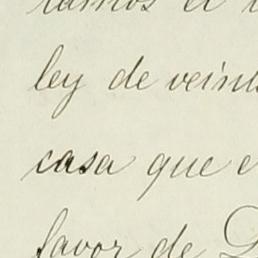 ley de veint
casa que e
favor de D